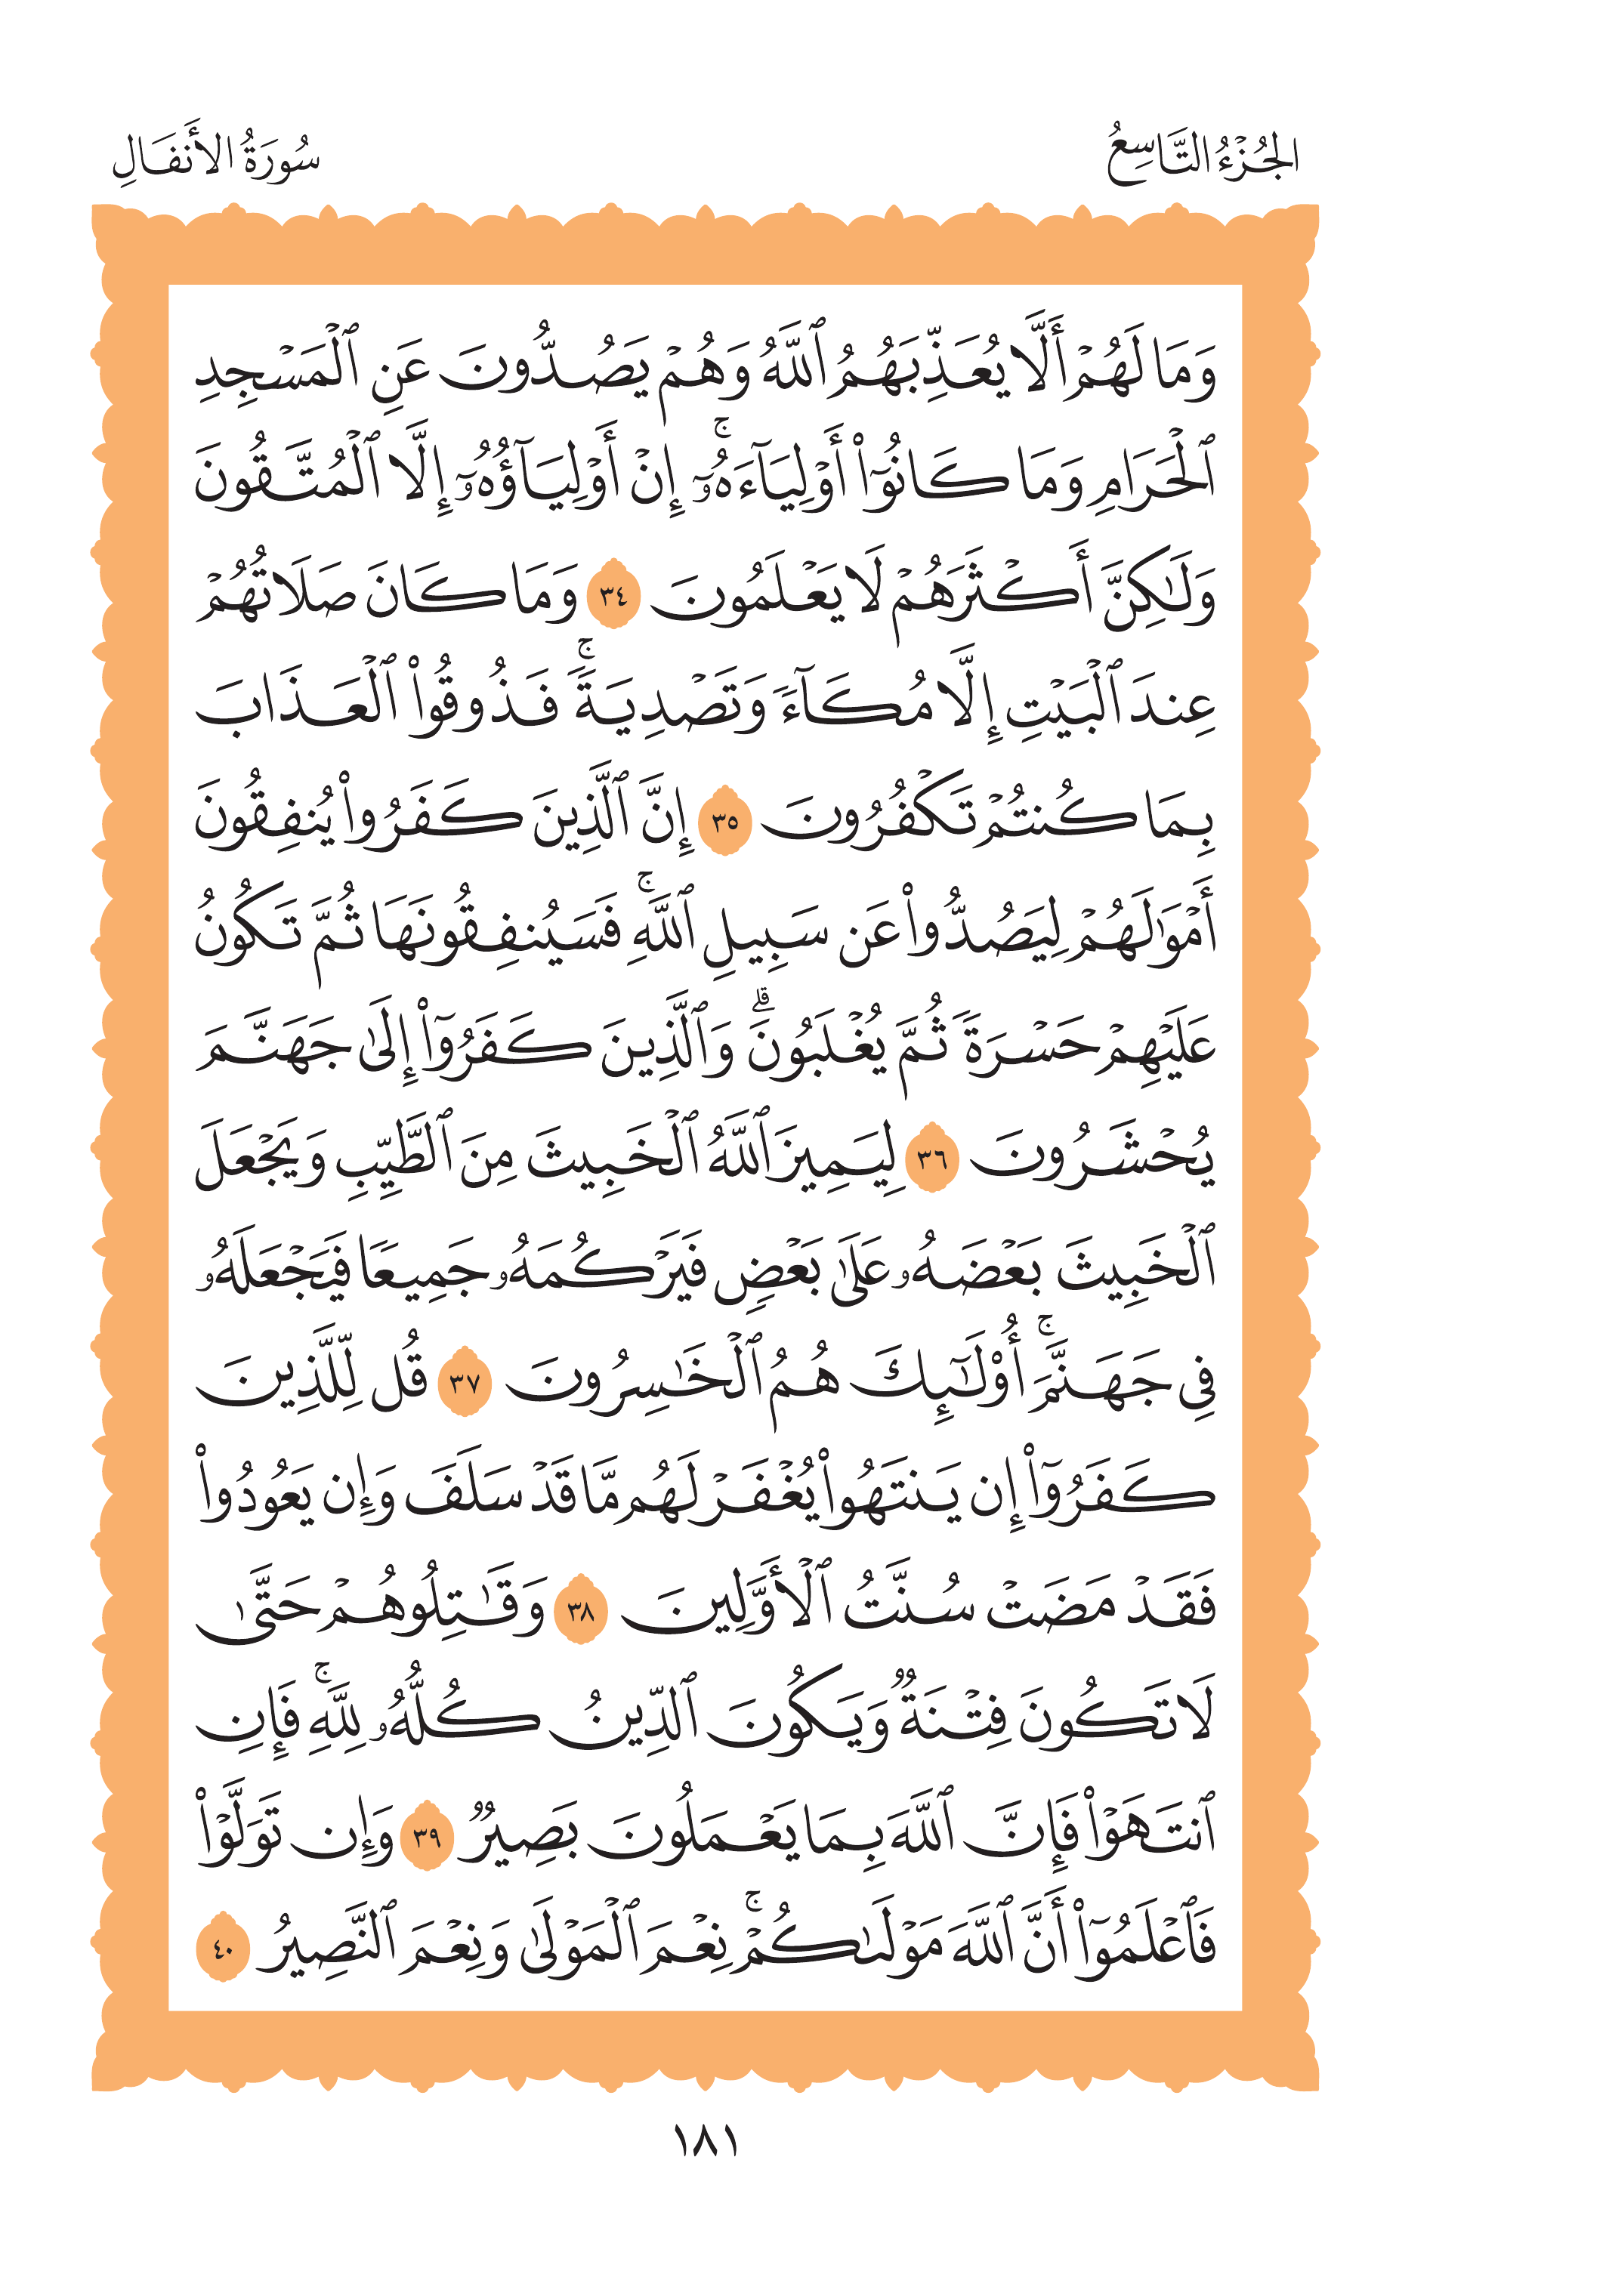 الجُزْءُ التَّاسِعُ
سُورَةُ الأَنفَالِ
وَمَا لَهُمۡ أَلَّا يُعَذِّبَهُمُ ٱللَّهُ وَهُمۡ يَصُدُّونَ عَنِ ٱلۡمَسۡجِدِ
ٱلۡحَرَامِ وَمَا كَانُوٓاْ أَوۡلِيَآءَهُۥٓۚ إِنۡ أَوۡلِيَآؤُهُۥٓ إِلَّا ٱلۡمُتَّقُونَ
وَلَٰكِنَّ أَكۡثَرَهُمۡ لَا يَعۡلَمُونَ ٣٤ وَمَا كَانَ صَلَاتُهُمۡ
عِندَ ٱلۡبَيۡتِ إِلَّا مُكَآءٗ وَتَصۡدِيَةٗۚ فَذُوقُواْ ٱلۡعَذَابَ
بِمَا كُنتُمۡ تَكۡفُرُونَ ٣٥ إِنَّ ٱلَّذِينَ كَفَرُواْ يُنفِقُونَ
أَمۡوَٰلَهُمۡ لِيَصُدُّواْ عَن سَبِيلِ ٱللَّهِۚ فَسَيُنفِقُونَهَا ثُمَّ تَكُونُ
عَلَيۡهِمۡ حَسۡرَةٗ ثُمَّ يُغۡلَبُونَۗ وَٱلَّذِينَ كَفَرُوٓاْ إِلَىٰ جَهَنَّمَ
يُحۡشَرُونَ ٣٦ لِيَمِيزَ ٱللَّهُ ٱلۡخَبِيثَ مِنَ ٱلطَّيِّبِ وَيَجۡعَلَ
ٱلۡخَبِيثَ بَعۡضَهُۥ عَلَىٰ بَعۡضٖ فَيَرۡكُمَهُۥ جَمِيعٗا فَيَجۡعَلَهُۥ
فِي جَهَنَّمَۚ أُوْلَٰٓئِكَ هُمُ ٱلۡخَٰسِرُونَ ٣٧ قُل لِّلَّذِينَ
كَفَرُوٓاْ إِن يَنتَهُواْ يُغۡفَرۡ لَهُم مَّا قَدۡ سَلَفَ وَإِن يَعُودُواْ
فَقَدۡ مَضَتۡ سُنَّتُ ٱلۡأَوَّلِينَ ٣٨ وَقَٰتِلُوهُمۡ حَتَّىٰ
لَا تَكُونَ فِتۡنَةٞ وَيَكُونَ ٱلدِّينُ كُلُّهُۥ لِلَّهِۚ فَإِنِ
ٱنتَهَوۡاْ فَإِنَّ ٱللَّهَ بِمَا يَعۡمَلُونَ بَصِيرٞ ٣٩ وَإِن تَوَلَّوۡاْ
فَٱعۡلَمُوٓاْ أَنَّ ٱللَّهَ مَوۡلَىٰكُمۡۚ نِعۡمَ ٱلۡمَوۡلَىٰ وَنِعۡمَ ٱلنَّصِيرُ ٤٠
١٨١